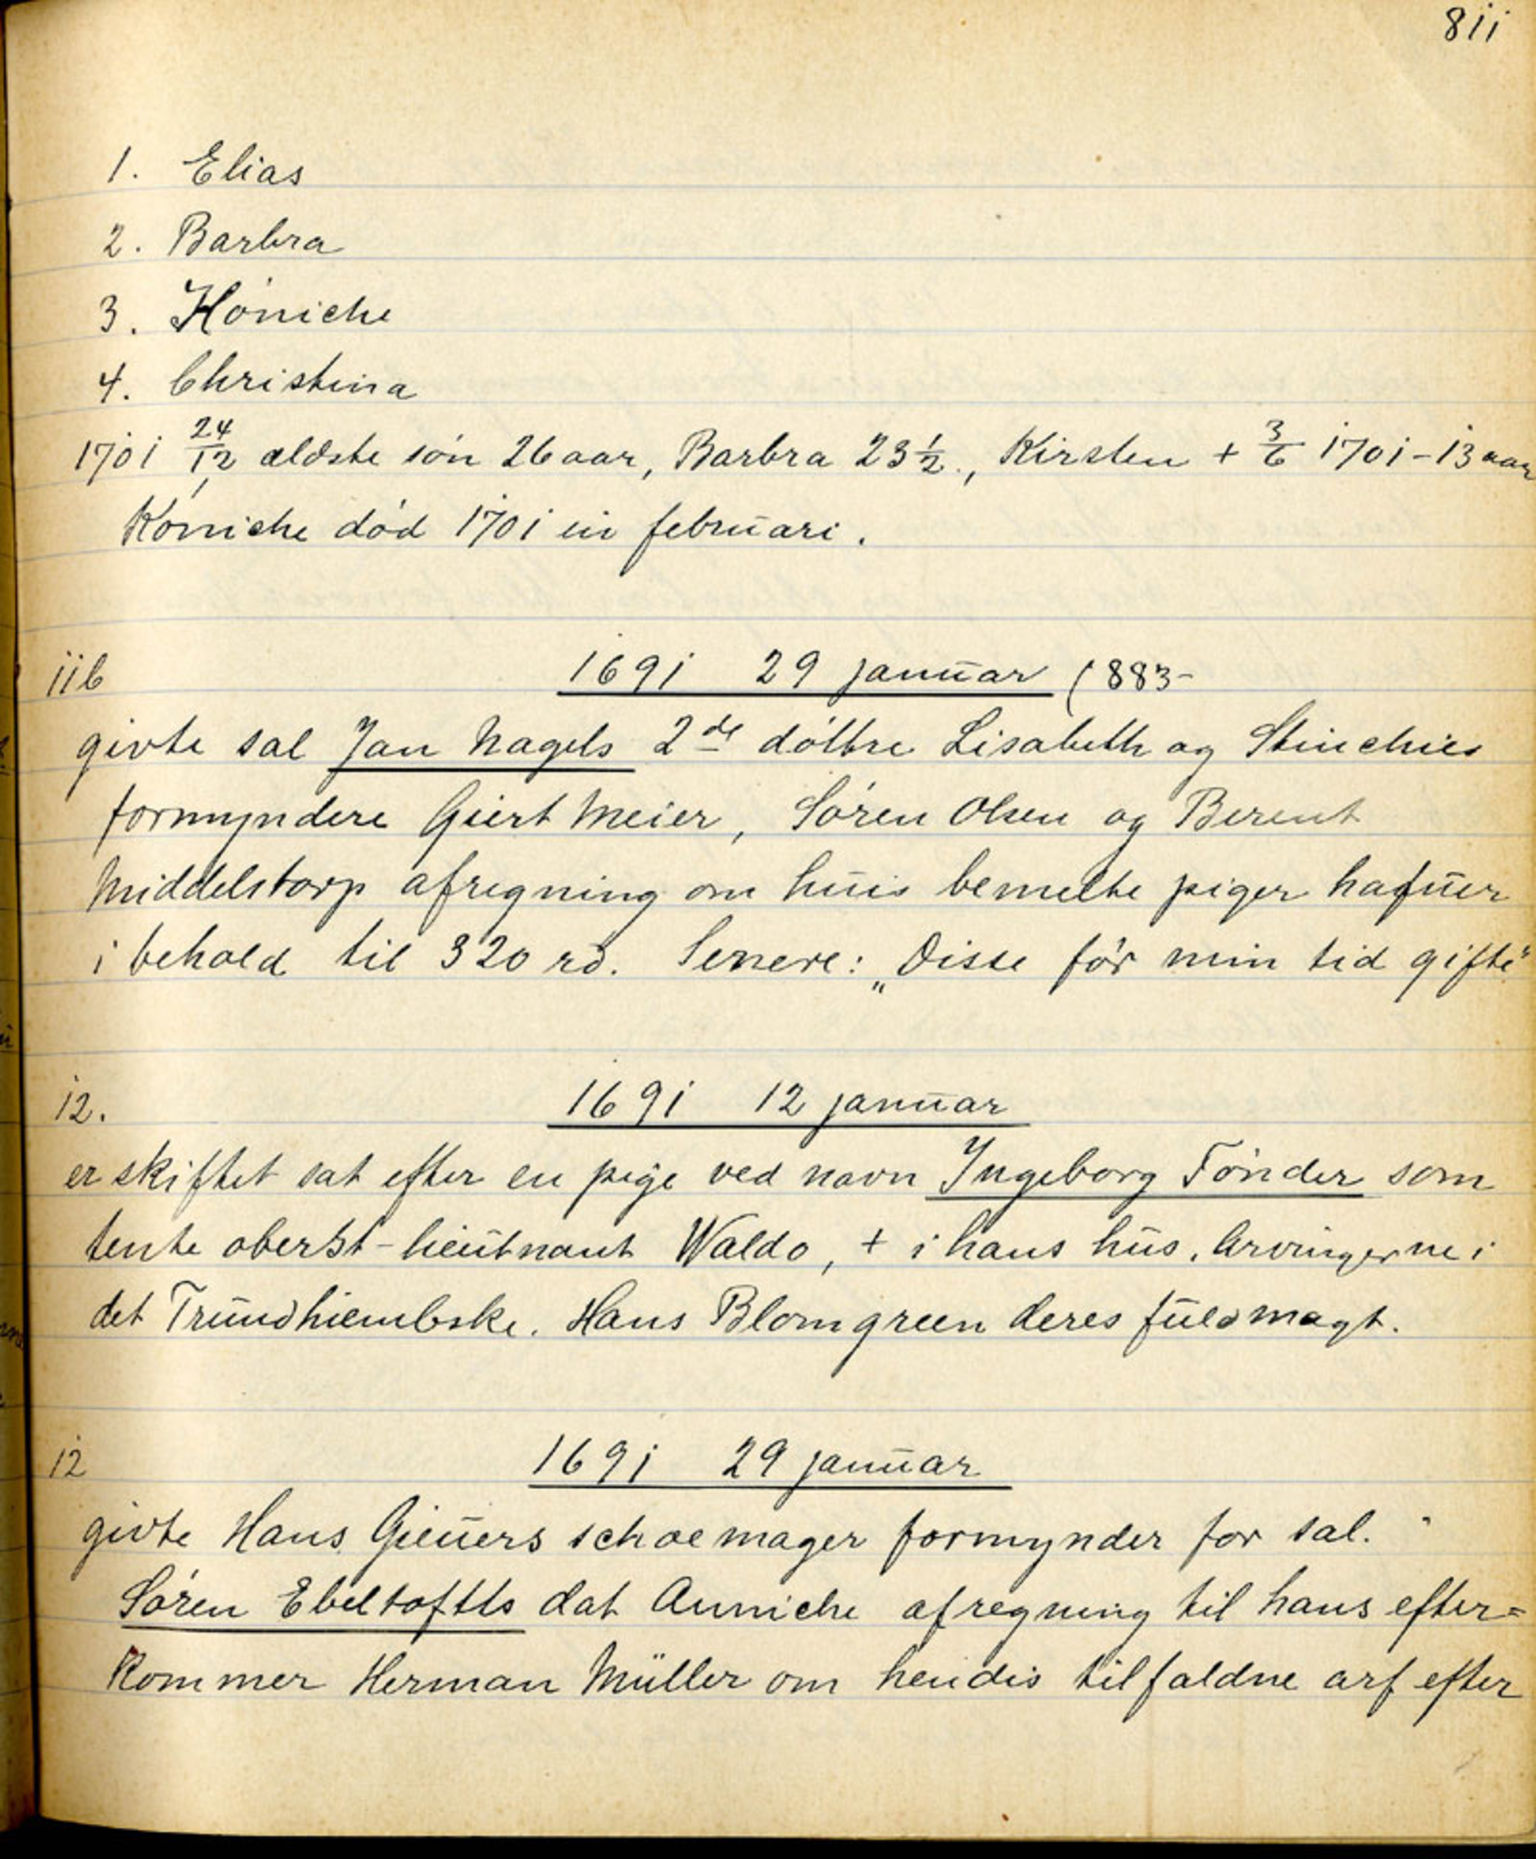 811
1. Elias
2. Barbra
3. Köniche
4. Christina
1701 24/12 ældste søn 26 aar, Barbra 23 1/2, Kirsten + 3/6 1701 - 13 aar
Köniche död 1701 in februari.
11b 1691 29 januar (883-
givte sal Jan Nagels 2de döttre Lisabeth og Stinchies
formyndere Giert Meier, Sören Olsen og Berent
Middelstorp afregning om huis bemelte piger hafuer
i behold til 320 rd. Senere: „Disse för min tid gifte"
12. 1691 12 januar
er skiftet sat efter en pige ved navn Ingeborg Tönder som
tente oberst-lieutnant Waldo, + i hans hus. Arvingerne i
det Trundhiembske. Hans Blomgreen deres fuldmagt.
12 1691 29 januar
givte Hans Gieuers schoemager formynder for sal.
Sören Ebeltoftls dat Anniche afregning til hans efter=
kommer Herman Müller om hendis tilfaldne arf efter